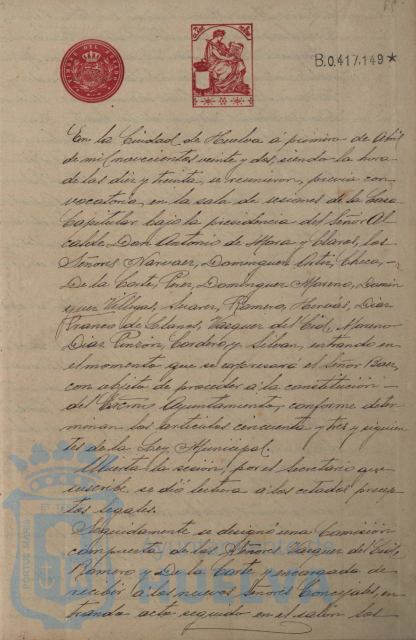 TIMBRE DEL ESTADO
B.0.417,149*
En la Ciudad de Huelva á primero de Abril
de mil novecientos veinte y dos, siendo la hora
de las diez y treinta, se reunieron, previa con
vocatoria, en la sala de sesiones de la Casa
Capitular bajo la presidencia del Señor Al
calde, Don Antonio de Mora y Claros, los
Señores Narvaez, Dominguez Ortiz, Checa, -
De la Corte, Perez, Dominguez Moreno, Domin
guez Villegas, Suarez, Romero, Hervás, Diaz
Franco de Llanos, Vazquez del Cid, Moreno
Diaz Pinzón, Cordero y Silvan, entrando en
el momento que se expresará el Señor Baez,
con objeto de proceder á la constitución -
del Excmo Ayuntamento, conforme deter
minan los artículos cincuenta y tres y siguien
tes de la Ley Municipal.
Abierta la sesión, por el Secretario que
suscribe se dió lectura á los citados precep
tos legales.
Seguidamente se designó una Comisión
compuesta de los Señores Vazquez del Cid,
Romero y De la Corte y encargada de
recibir á los nuevos Señores Concejales, en
trando acto seguido en el salón los
HUELVA